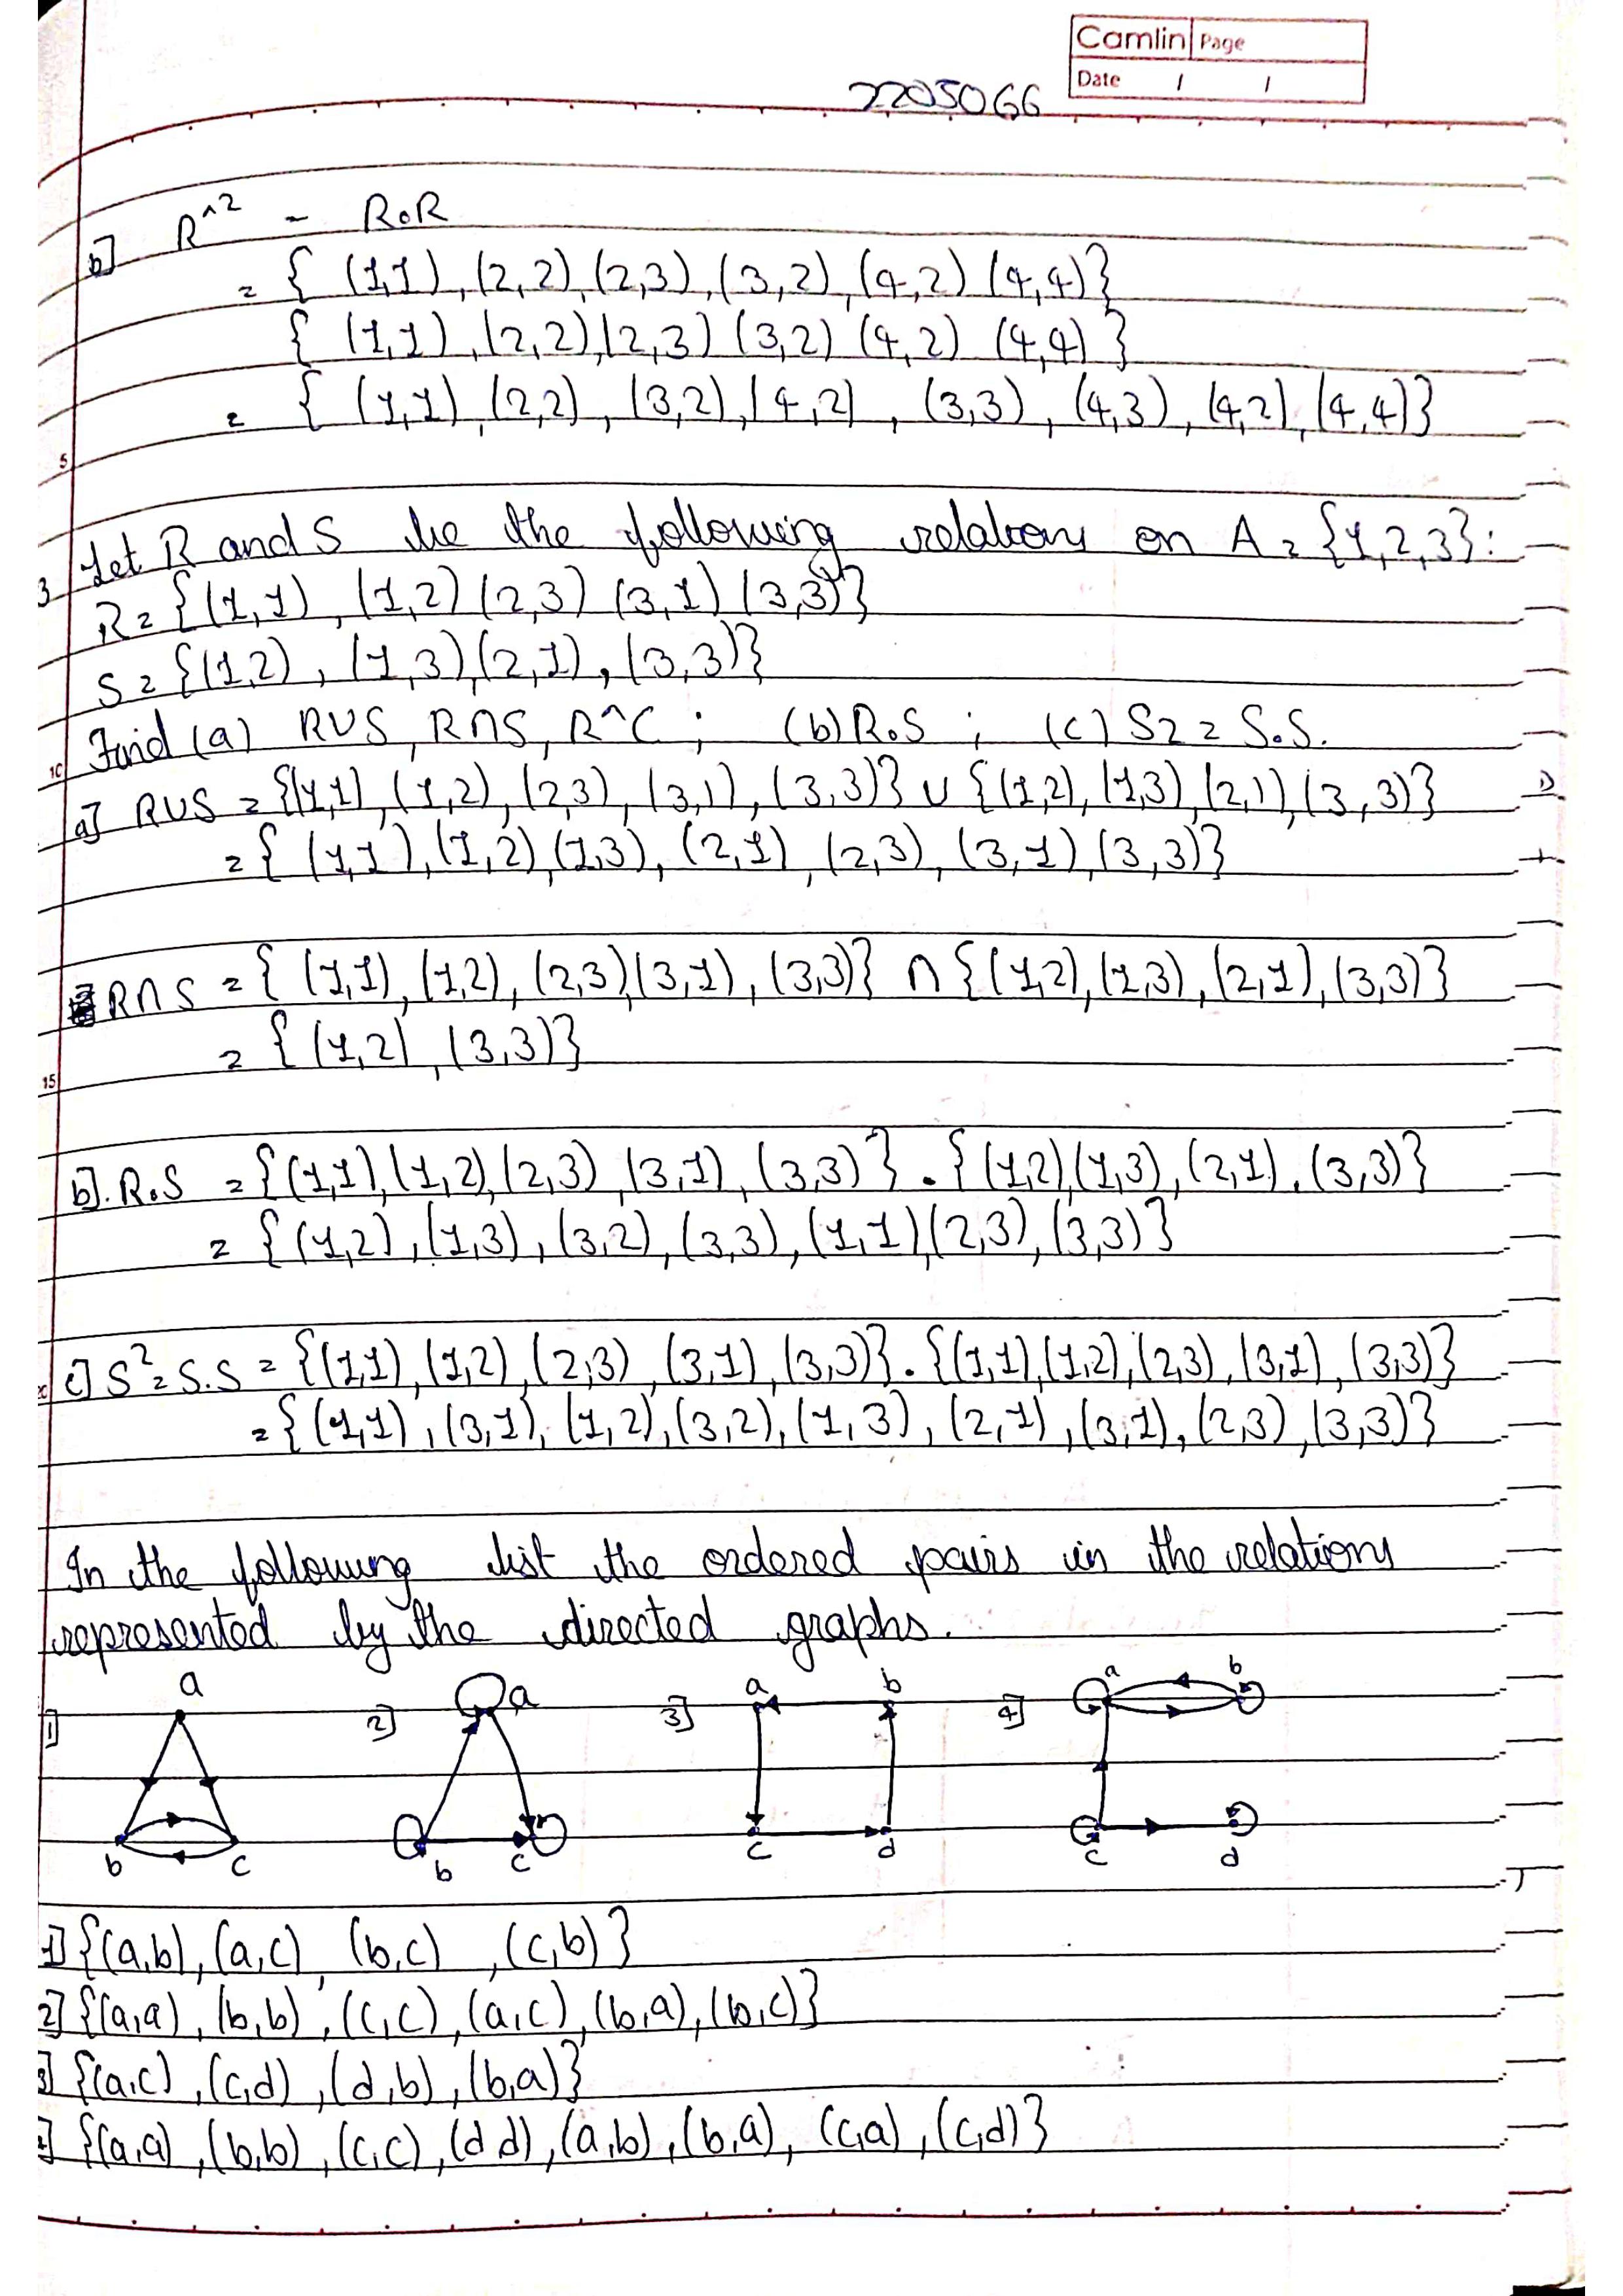 Camlin Page
Date / /
2205066
b] R^2 - R∘R
= { (1,1), (2,2), (2,3), (3,2), (4,2) (4,4)}
{ (1,1), (2,2), (2,3) (3,2) (4,2) (4,4) }
= { (1,1), (2,2), (3,2), (4,2), (3,3), (4,3), (4,2), (4,4)}
5
3 Let R and S be the following relations on A = {1,2,3}:
R = {(1,1), (1,2) (2,3) (3,1) (3,3)}
S = {(1,2), (1,3), (2,1), (3,3)}
Find (a) RUS, R∩S, R^C ; (b) R∘S ; (c) S2 = S∘S.
10
a] RUS = {(1,1), (1,2), (2,3), (3,1), (3,3)} U {(1,2), (1,3), (2,1), (3,3)}
= { (1,1), (1,2), (1,3), (2,1), (2,3), (3,1), (3,3)}
R∩S = { (1,1), (1,2), (2,3), (3,1), (3,3)} ∩ {(1,2), (1,3), (2,1), (3,3)}
= { (1,2), (3,3)}
15
b]. R.S = {(1,1), (1,2), (2,3), (3,1), (3,3)} . {(1,2), (1,3), (2,1), (3,3)}
= {(1,2), (1,3), (3,2), (3,3), (1,1), (2,3), (3,3)}
c] S² = S.S = {(1,1), (1,2), (2,3), (3,1), (3,3)} . {(1,1), (1,2), (2,3), (3,1), (3,3)}
20
= {(1,1), (3,1), (1,2), (3,2), (1,3), (2,1), (3,1), (2,3), (3,3)}
In the following list the ordered pairs in the relations
represented by the directed graphs.
1] a b c
2] a b c
3] a b c d
4] a b c d
1] {(a,b), (a,c), (b,c) , (c,b)}
2] {(a,a), (b,b), (c,c), (a,c), (b,a), (b,c)}
3] {(a,c), (c,d), (d,b), (b,a)}
4] {(a,a), (b,b), (c,c), (d d), (a,b), (b,a), (c,a), (c,d)}